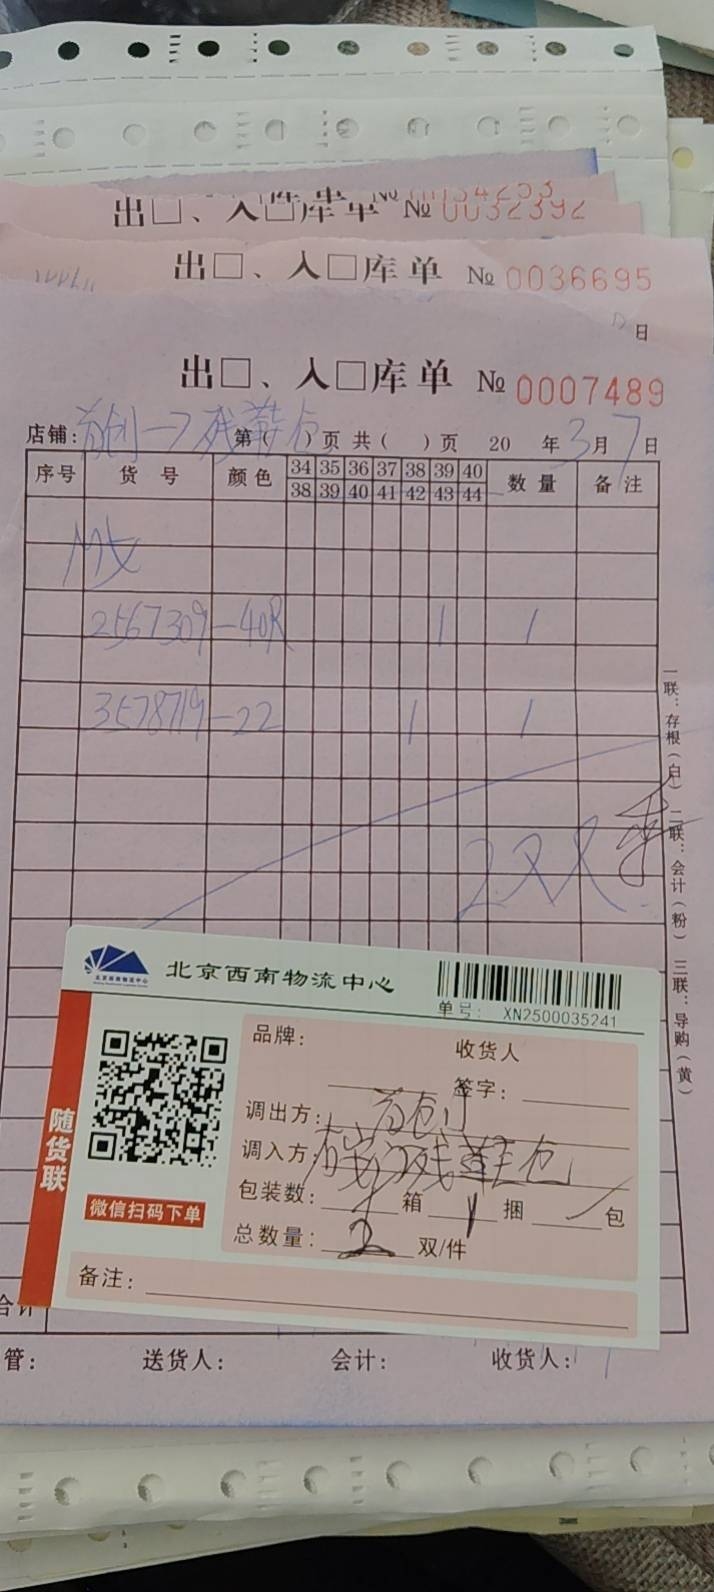 出□、入□库单 № 0032392
出□、入□库单 № 0036695
日
出□、入□库单 № 0007489
店铺: 首创→残鞋仓 第( )页 共( )页 20 年3月7日
序号 货号 颜色 34 35 36 37 38 39 40 数量 备注
38 39 40 41 42 43 44
2567309-40R 1 1
3578719-22 1 1
2双
一联:存根(白) 二联:会计(粉) 三联:导购(黄)
北京西南物流中心
单号: XN2500035241
随货联
微信扫码下单
品牌:
收货人
签字:
调出方: 首创
调入方: 残鞋仓
包装数: 箱 1 捆 包
总数量: 2 双/件
备注:
合计
管: 送货人: 会计: 收货人: